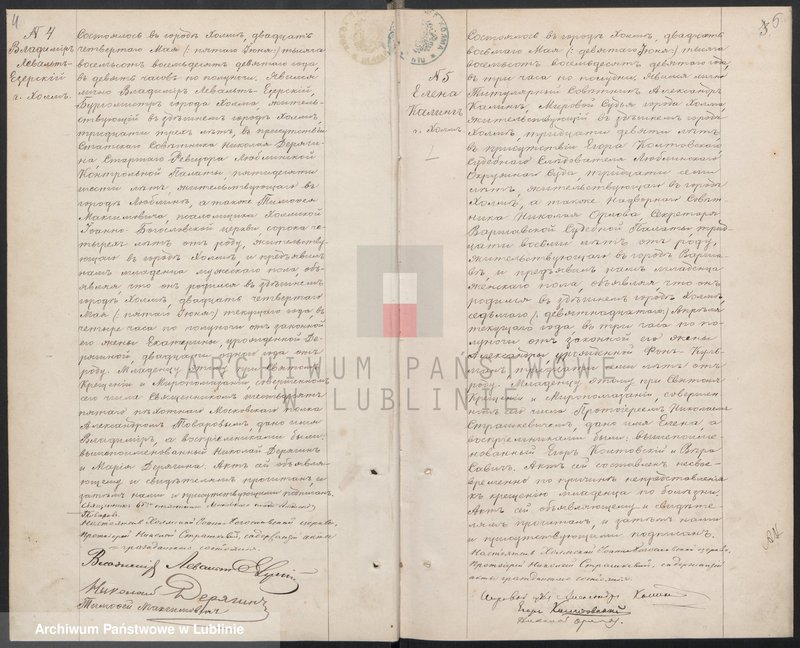 4
№ 4
Владимiръ
Левальтъ-
Езерскiй
г. Холмъ.
Состоялось въ городѣ Холмѣ, двадцать
четвертаго Мая (: пятаго Iюня:) тысяча
восемьсотъ восемьдесятъ девятаго года,
въ девять часовъ по полуночи. Явился
лично Владимiръ Левальтъ-Езерскiй,
Бургомистръ города Холма, житель-
ствующiй въ здѣшнемъ городѣ Холмѣ,
тридцати трехъ лѣтъ, въ присутствiи
Статскаго Совѣтника Николая Деряги-
на Старшаго Ревизора Люблинской
Контрольной Палаты, пятидесяти
шести лѣтъ, жительствующаго въ
городѣ Люблинѣ, а также Тимофея
Максимовича, псаломщика Холмской
Iоанно-Богословской церкви, сорока че-
тырехъ лѣтъ отъ роду, жительству-
ющаго въ городѣ Холмѣ, и предъявилъ
намъ младенца мужескаго пола, объ-
являя что онъ родился въ здѣшнемъ
городѣ Холмѣ, двадцать четвертаго
Мая (: пятаго Iюня:) текущаго года, въ
четыре часа по полуночи отъ законной
его жены Екатерины, урожденной Де-
рягиной, двадцати одного года отъ
роду. Младенцу этому при Святомъ
Крещенiи и Мѵропомазанiи, совершенномъ
сего числа Священникомъ шестьдесятъ
пятаго пѣхотнаго Московскаго полка
Александромъ Товаровымъ, дано имя
Владимiръ, а воспрiемниками были:
вышепоименованный Николай Дерягинъ
и Марiя Дерягина. Актъ сей объявля-
ющему и свидѣтелямъ прочитанъ, и
затѣмъ нами и присутствующими подписанъ.
Священникъ 65го пѣхотнаго Московскаго полка Александръ
Товаровъ.
Настоятель Холмской Iоанно-Богословской церкви,
Протоiерей Николай Страшкевичъ, содержащiй акты
гражданскаго состоянiя.
Владимiръ Левальтъ Езерскiй
Николай Дерягинъ
Тимофей Максимовичъ
5
№ 5
Елена
Калинъ
г. Холмъ
Состоялось въ городѣ Холмѣ, двадцать
восьмаго Мая (: девятаго Iюня:) тысяча
восемьсотъ восемьдесятъ девятаго года,
въ три часа по полудни. Явился лично
Титулярный Совѣтникъ Александръ
Калинъ, Мировой Судья города Холма,
жительствующiй въ здѣшнемъ городѣ
Холмѣ, тридцати девяти лѣтъ
въ присутствiи Егора Контовскаго
Судебнаго Слѣдователя Люблинскаго
Окружнаго Суда, тридцати семи
лѣтъ, жительствующаго въ городѣ
Холмѣ, а также Надворнаго Совѣт-
ника Николая Орлова Секретаря
Варшавской Судебной Палаты трид-
цати восьми лѣтъ отъ роду,
жительствующаго въ городѣ Варша-
вѣ, и предъявилъ намъ младенца
женскаго пола, объявляя что онъ
родился въ здѣшнемъ городѣ Холмѣ,
седьмаго (: девятнадцатаго:) Апрѣля
текущаго года, въ три часа по по-
луночи отъ законной его жены
Александры, урожденной Фонъ-
тридцати семи лѣтъ отъ
роду. Младенцу этому при Святомъ
Крещенiи и Мѵропомазанiи, совершен-
номъ сего числа Протоiереемъ Николаемъ
Страшкевичемъ, дано имя Елена, а
воспрiемниками были: вышепоиме-
нованный Егоръ Контовскiй и Вѣра
Савичъ. Актъ сей составленъ несвое-
временно по причинѣ непредставленiя
къ крещенiю младенца по болѣзни.
Актъ сей объявляющему и свидѣте-
лямъ прочитанъ, и затѣмъ нами
и присутствующими подписанъ.
Настоятель Холмской Iоанно-Богословской церкви,
Протоiерей Николай Страшкевичъ, содержащiй
акты гражданскаго состоянiя.
Мировой Судья Александръ Калинъ
Егоръ Контовскiй
Николай Орловъ
ARCHIWUM PAŃSTWOWE
W LUBLINIE
Archiwum Państwowe w Lublinie